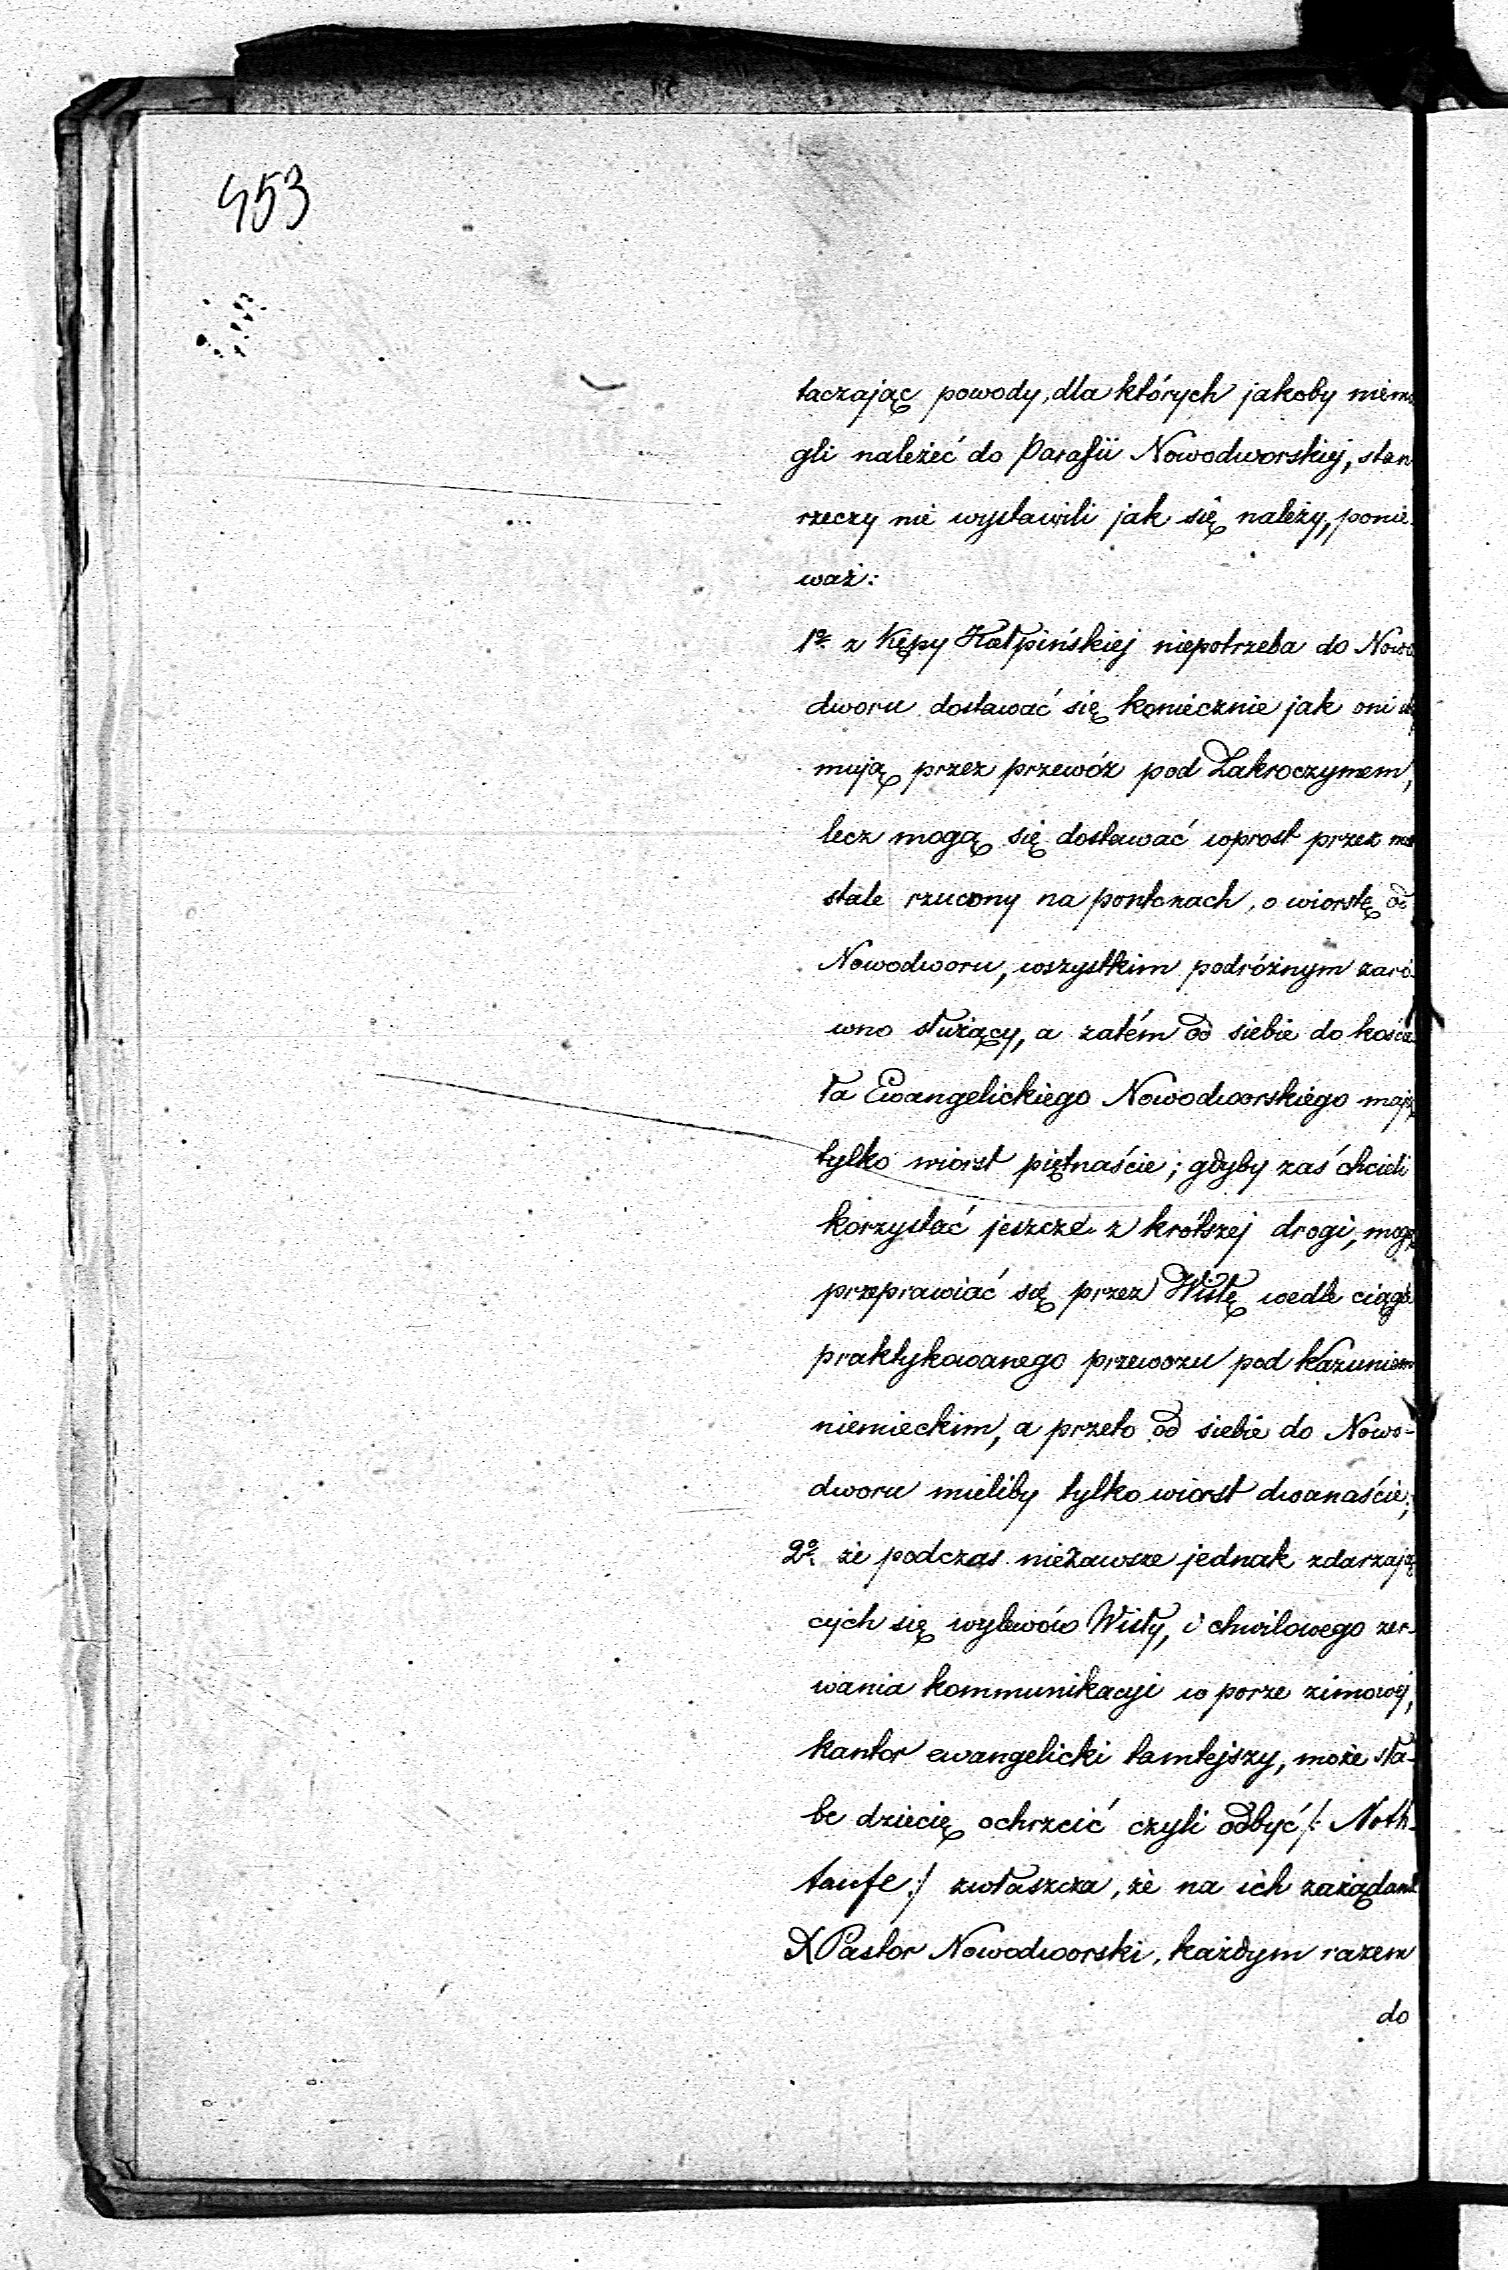 453
taczając powody, dla których jakoby niemo
gli należeć do Parafii Nowodworskiej, stan
rzeczy nie wystawili jak się należy, ponie-
waż:
1º z Kępy Kałpińskiej niepotrzeba do Nowo
dworu dostawać się koniecznie jak oni
mują przez przewóz pod Zakroczymem,
lecz mogą się dostawać wprost przez most
stale rzucony na pontonach, o wiorstę od
Nowodworu, wszystkim podróżnym zaró
wno służący, a zatém od siebie do kościo
ła Ewangelickiego Nowodworskiego mają
tylko wiorst piętnaście; gdyby zaś chcieli
korzystać jeszcze z krótszej drogi, mogą
przeprawiać się przez Wisłę wedle ciągle
praktykowanego przewozu pod Kazuniem
niemieckim, a przeto od siebie do Nowo-
dworu mieliby tylko wiorst dwanaście;
2º że podczas niezawsze jednak zdarzają
cych się wylewów Wisły, i chwilowego zer-
wania kommunikacyi w porze zimowej,
kantor ewangelicki tamtejszy, może sła-
be dziecię ochrzcić czyli odbyć /: Noth-
taufe :/ zwłaszcza, że na ich zażądanie
X Pastor Nowodworski, każdym razem
do